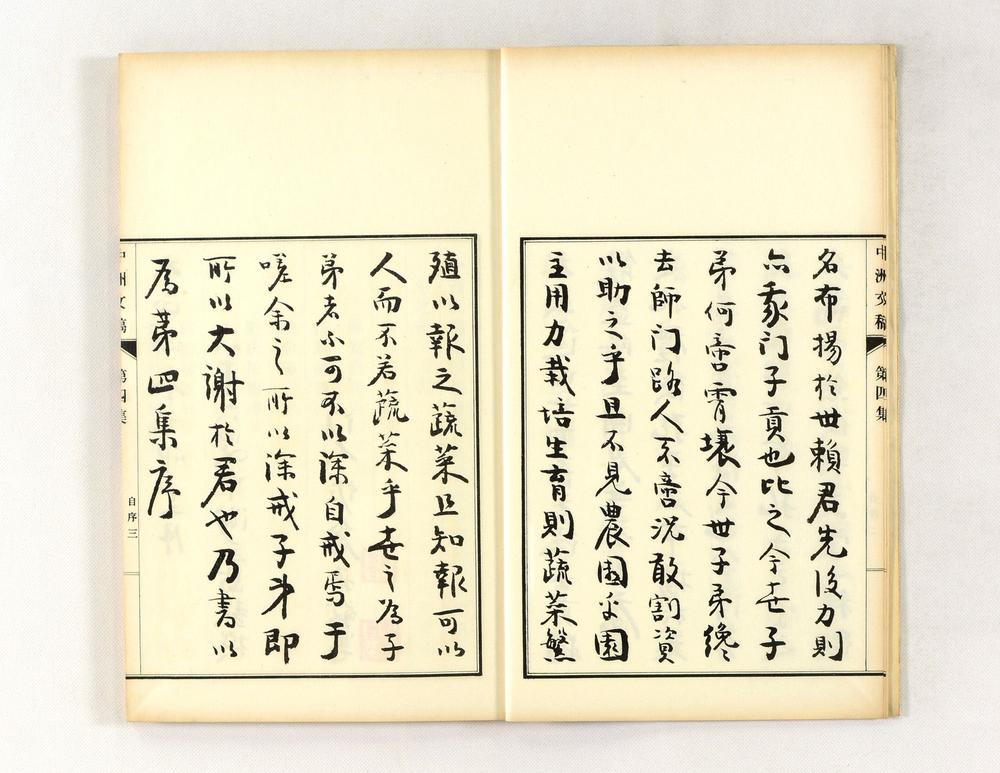 中洲文稿 第四集
名布揚於世賴君先後力則
亦门子貢也比之今世子
弟何啻霄壤今世子弟纔
去師门路人不啻況敢割資
以助之乎且不見農圃乎園
主用力栽培生育則蔬菜繁
殖以報之蔬菜且知報可以
人而不若蔬菜乎世之為子
弟者不可不以深自戒焉于
嗟余之所以深戒子弟即
所以大謝於君也乃書以
為第四集序
中洲文稿 第四集 自序三